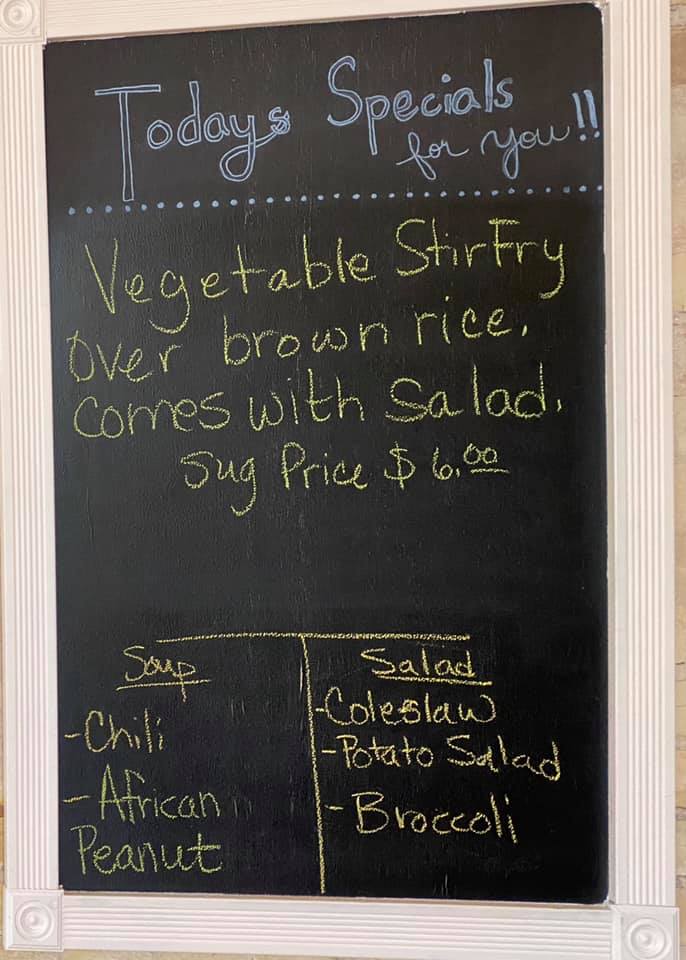 Todays Specials
for you!!
Vegetable StirFry
over brown rice.
Comes with Salad.
Sug Price $6.00
Soup
-Chili
-African
Peanut
Salad
-Coleslaw
-Potato Salad
-Broccoli